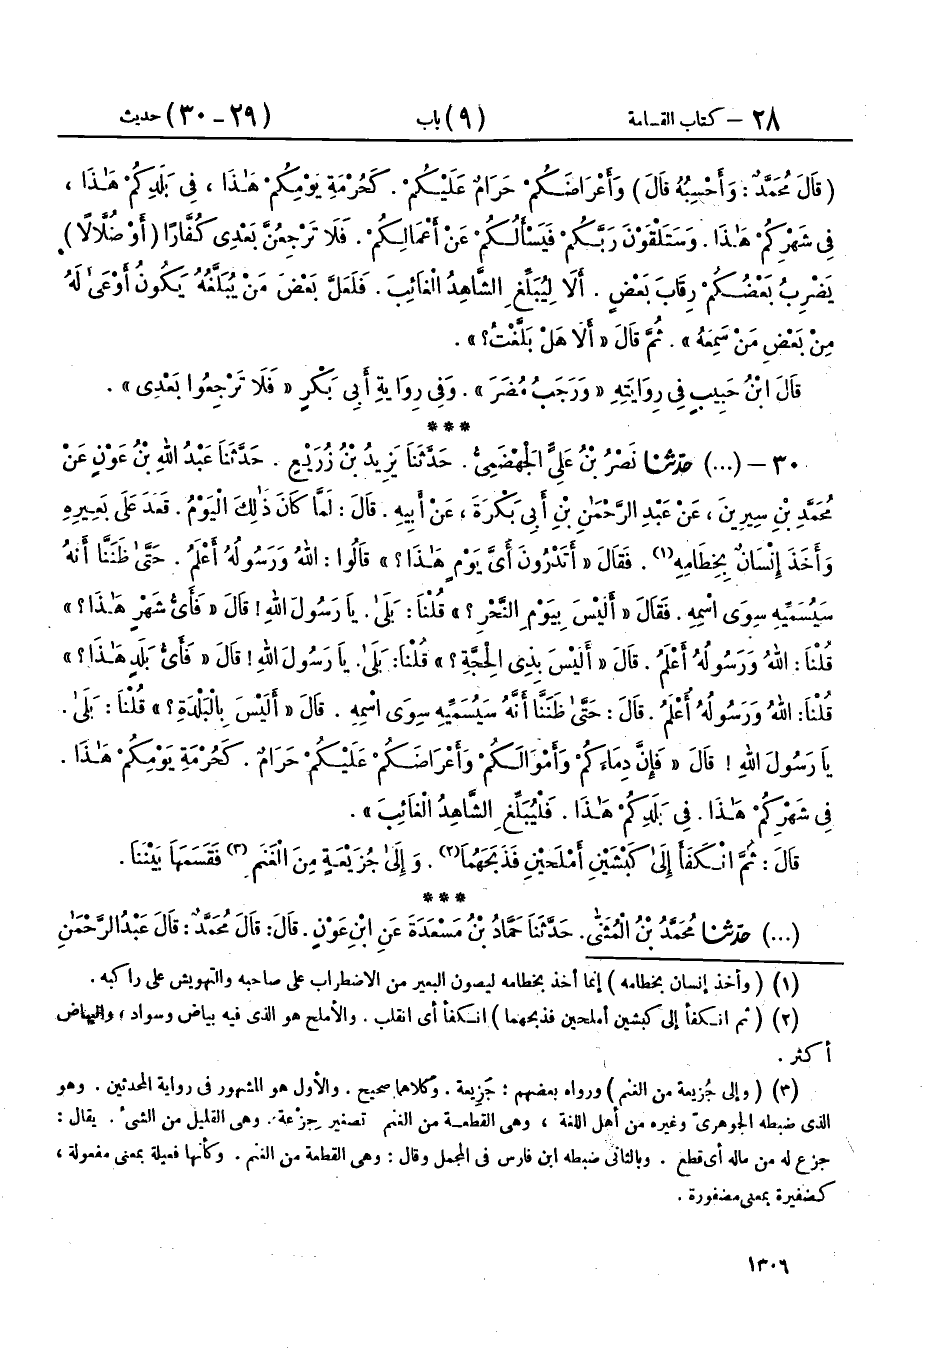 ٢٨ – كتاب القسامة (٩) باب (٢٩ – ٣٠) حديث
( قَالَ مُحَمَّدٌ : وَأَحْسِبُهُ قَالَ ) وَأَعْرَاضَكُمْ حَرَامٌ عَلَيْكُمْ . كَحُرْمَةِ يَوْمِكُمْ هَٰذَا ، فِي بَلَدِكُمْ هَٰذَا ،
فِي شَهْرِكُمْ هَٰذَا . وَسَتَلْقَوْنَ رَبَّكُمْ فَيَسْأَلُكُمْ عَنْ أَعْمَالِكُمْ . فَلَا تَرْجِعُنَّ بَعْدِي كُفَّارًا ( أَوْ ضُلَّالًا ).
يَضْرِبُ بَعْضُكُمْ رِقَابَ بَعْضٍ . أَلَا لِيُبَلِّغِ الشَّاهِدُ الْغَائِبَ . فَلَعَلَّ بَعْضَ مَنْ يُبَلَّغُهُ يَكُونُ أَوْعَىٰ لَهُ
مِنْ بَعْضِ مَنْ سَمِعَهُ » . ثُمَّ قَالَ « أَلَا هَلْ بَلَّغْتُ ؟ » .
قَالَ ابْنُ حَبِيبٍ فِي رِوَايَتِهِ « وَرَجَبُ مُضَرَ » . وَفِي رِوَايَةِ أَبِي بَكْرٍ « فَلَا تَرْجِعُوا بَعْدِي » .
***
٣٠ – (...) حدّثنا نَصْرُ بْنُ عَلِيٍّ الْجَهْضَمِيُّ . حَدَّثَنَا يَزِيدُ بْنُ زُرَيْعٍ . حَدَّثَنَا عَبْدُ اللهِ بْنُ عَوْنٍ عَنْ
مُحَمَّدِ بْنِ سِيرِينَ ، عَنْ عَبْدِ الرَّحْمَٰنِ بْنِ أَبِي بَكْرَةَ ، عَنْ أَبِيهِ . قَالَ : لَمَّا كَانَ ذَٰلِكَ الْيَوْمُ . قَعَدَ عَلَى بَعِيرِهِ
وَأَخَذَ إِنْسَانٌ بِخِطَامِهِ (١) . فَقَالَ « أَتَدْرُونَ أَيَّ يَوْمٍ هَٰذَا ؟ » قَالُوا : اللهُ وَرَسُولُهُ أَعْلَمُ . حَتَّىٰ ظَنَنَّا أَنَّهُ
سَيُسَمِّيهِ سِوَى اسْمِهِ . فَقَالَ « أَلَيْسَ بِيَوْمِ النَّحْرِ ؟ » قُلْنَا : بَلَىٰ . يَا رَسُولَ اللهِ ! قَالَ « فَأَيُّ شَهْرٍ هَٰذَا ؟ »
قُلْنَا : اللهُ وَرَسُولُهُ أَعْلَمُ . قَالَ « أَلَيْسَ بِذِي الْحِجَّةِ ؟ » قُلْنَا : بَلَىٰ . يَا رَسُولَ اللهِ ! قَالَ « فَأَيُّ بَلَدٍ هَٰذَا ؟ »
قُلْنَا : اللهُ وَرَسُولُهُ أَعْلَمُ . قَالَ : حَتَّىٰ ظَنَنَّا أَنَّهُ سَيُسَمِّيهِ سِوَى اسْمِهِ . قَالَ « أَلَيْسَ بِالْبَلْدَةِ ؟ » قُلْنَا : بَلَىٰ .
يَا رَسُولَ اللهِ ! قَالَ « فَإِنَّ دِمَاءَكُمْ وَأَمْوَالَكُمْ وَأَعْرَاضَكُمْ عَلَيْكُمْ حَرَامٌ . كَحُرْمَةِ يَوْمِكُمْ هَٰذَا .
فِي شَهْرِكُمْ هَٰذَا . فِي بَلَدِكُمْ هَٰذَا . فَلْيُبَلِّغِ الشَّاهِدُ الْغَائِبَ » .
قَالَ : ثُمَّ انْكَفَأَ إِلَىٰ كَبْشَيْنِ أَمْلَحَيْنِ فَذَبَحَهُمَا (٢) . وَ إِلَىٰ جُزَيْعَةٍ مِنَ الْغَنَمِ (٣) فَقَسَمَهَا بَيْنَنَا .
***
(...) حدّثنا مُحَمَّدُ بْنُ الْمُثَنَّىٰ . حَدَّثَنَا حَمَّادُ بْنُ مَسْعَدَةَ عَنِ ابْنِ عَوْنٍ . قَالَ : قَالَ مُحَمَّدٌ : قَالَ عَبْدُ الرَّحْمَٰنِ
(١) ( وأخذ إنسان بخطامه ) إنما أخذ بخطامه ليصون البعير من الاضطراب على صاحبه والتهويش على راكبه .
(٢) ( ثم انكفأ إلى كبشين أملحين فذبحهما ) انكفأ أى انقلب . والأملح هو الذى فيه بياض وسواد ، والبياض
أكثر .
(٣) ( وإلى جُزيعة من الغنم ) ورواه بعضهم : جَزِيعة . وكلاهما صحيح . والأول هو المشهور فى رواية المحدثين . وهو
الذى ضبطه الجوهرىّ وغيره من أهل اللغة ، وهى القطعة من الغنم تصغير جِزْعة . وهى القليل من الشىء . يقال :
جزع له من ماله أى قطع . وبالثانى ضبطه ابن فارس فى المجمل وقال : وهى القطعة من الغنم . وكأنها فعيلة بمعنى مفعولة ،
كضفيرة بمعنى مضفورة .
١٣٠٦